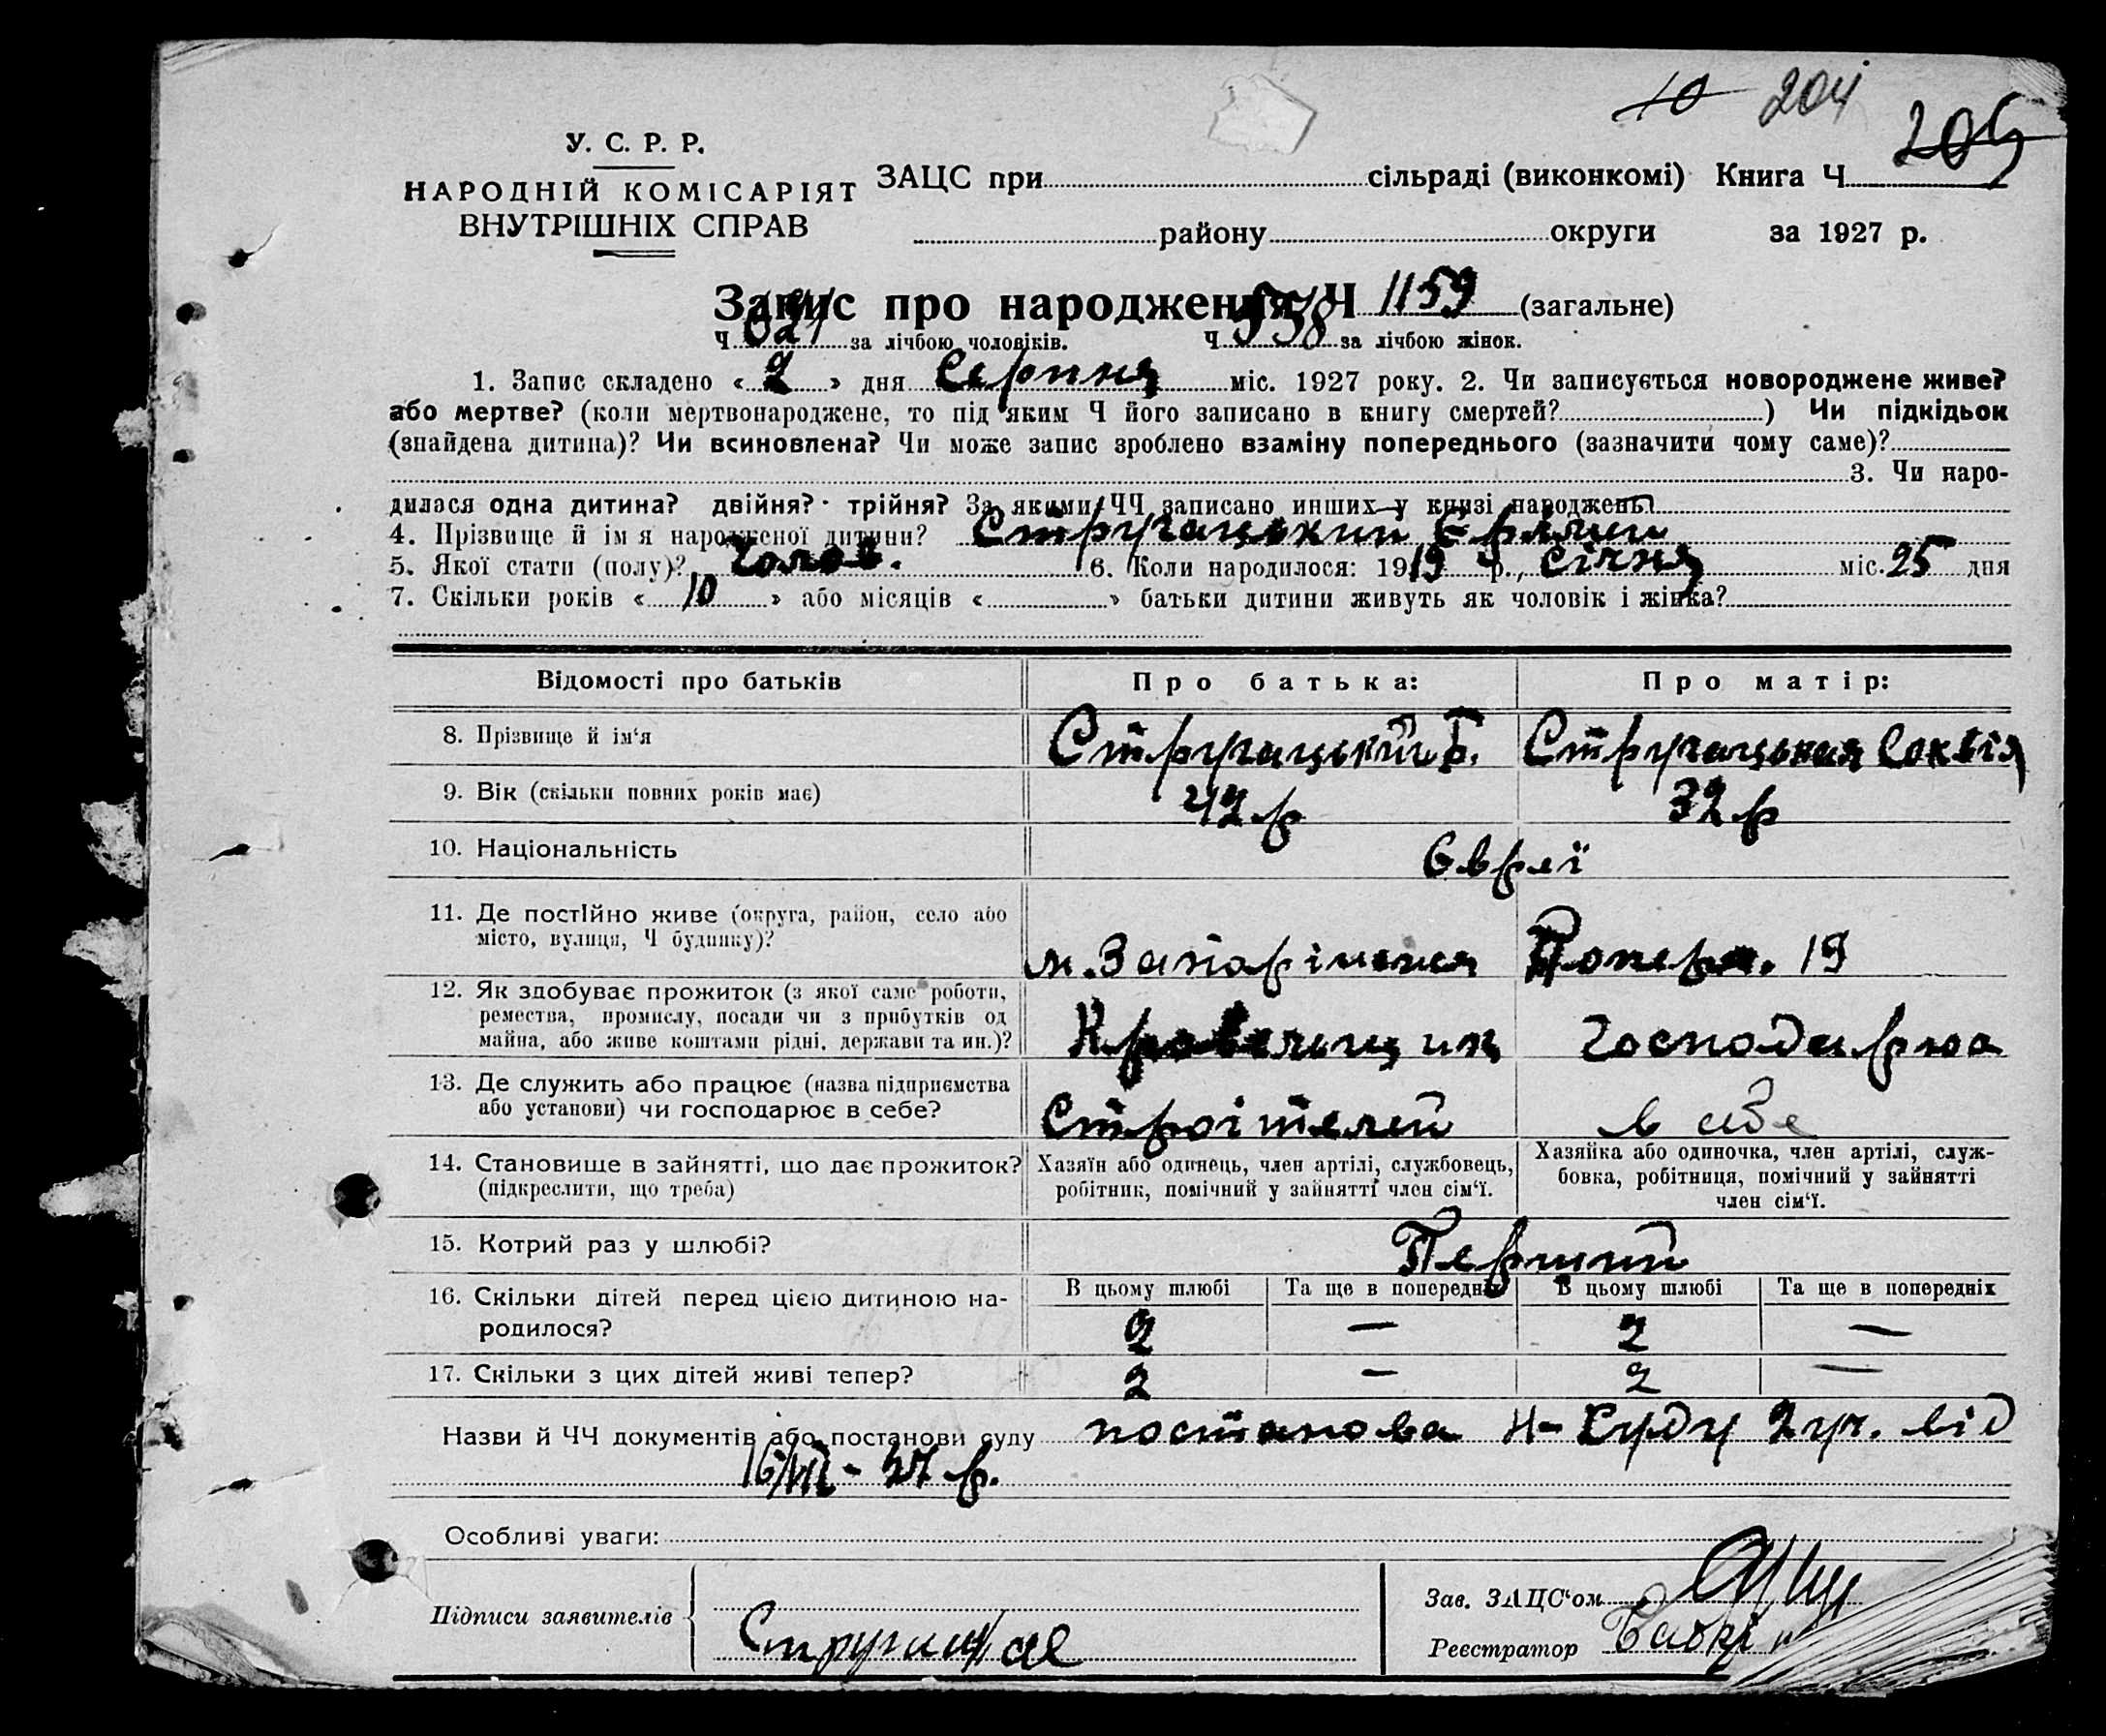 10 204
205
У. С. Р. Р.
НАРОДНІЙ КОМІСАРІЯТ
ВНУТРІШНІХ СПРАВ
ЗАЦС при сільраді (виконкомі) Книга Ч
району округи за 1927 р.
Запис про народження Ч 1159 (загальне)
Ч 621 за лічбою чоловіків. Ч 538 за лічбою жінок.
1. Запис складено « 2 » дня Серпня міс. 1927 року. 2. Чи записується новороджене живе?
або мертве? (коли мертвонароджене, то під яким Ч його записано в книгу смертей? ) Чи підкідьок
(знайдена дитина)? Чи всиновлена? Чи може запис зроблено взаміну попереднього (зазначити чому саме)?
3. Чи наро-
дилася одна дитина? двійня? трійня? За якими ЧЧ записано инших у книзі народжень?
4. Прізвище й ім я народженої дитини? Стругацький
5. Якої стати (полу)? Чолов. 6. Коли народилося: 1919 р., Січня міс. 25 дня
7. Скільки років « 10 » або місяців « » батьки дитини живуть як чоловік і жінка?
Відомості про батьків Про батька: Про матір:
8. Прізвище й ім‘я Стругацький Б. Стругацькая
9. Вік (скільки повних років має) 42 р 32 р
10. Національність Єврєї
11. Де постійно живе (округа, район, село або
місто, вулиця, Ч будинку)? м. 19
12. Як здобуває прожиток (з якої саме роботи,
ремества, промислу, посади чи з прибутків од
майна, або живе коштами рідні, держави та ин.)? Кровельщик господарюа
13. Де служить або працює (назва підприємства
або установи) чи господарює в себе? Строітелей в себе
14. Становище в зайнятті, що дає прожиток?
(підкреслити, що треба)
Хазяїн або одинець, член артілі, службовець,
робітник, помічний у зайнятті член сім‘ї.
Хазяйка або одиночка, член артілі, служ-
бовка, робітниця, помічний у зайнятті
член сім‘ї.
15. Котрий раз у шлюбі? Перший
В цьому шлюбі Та ще в попередніх В цьому шлюбі Та ще в попередніх
16. Скільки дітей перед цією дитиною на-
родилося? 2 — 2 —
17. Скільки з цих дітей живі тепер? 2 — 2 —
Назви й ЧЧ документів або постанови суду постанова Н-Суду 2 уч. від
16/VII - 27 р.
Особливі уваги:
Підписи заявителів
Зав. ЗАЦС‘ом
Реєстратор